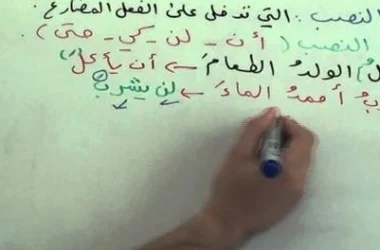 النصب : التي تدخل على الفعل المضارع .
النصب ( أن - لن - كي - حتى ) .
لُ الولدُ الطعامَ ← أن يأكلَ
بُ أحمدُ الماءَ ← لن يشربَ